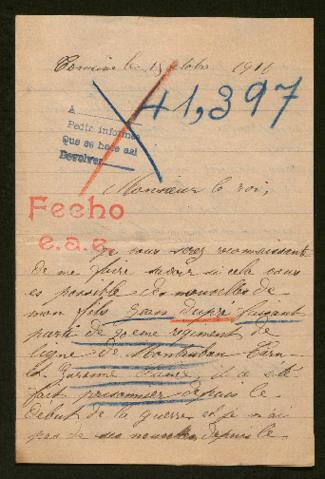 le 15 octobre 1916
41,397
A
Pedir informes
Que se hace así
Devolver
Monsieur le roi,
Fecho
e.a.e.
Je vous serez reconnaissante
de me faire savoir si cela vous
es possible des nouvelles de
mon fils Jean Dupré faisant
partie du 20eme régiment de
ligne de Montauban Tarn
Garonne il a été
fait prisonnier depuis le
début de la guerre et je n'ai
pas de ses nouvelles depuis le